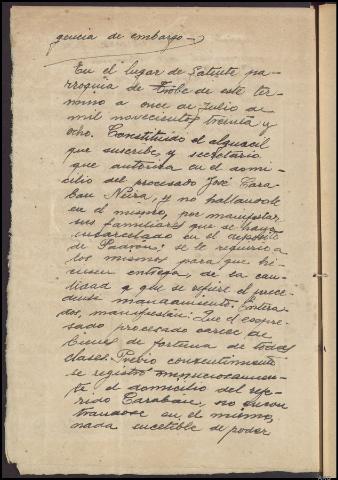 gencia de embargo
En el lugar de Satrete pa-
rroquia de Trobe de este ter-
mino a once de Julio de
mil novecientos treinta y
ocho. Constituido el alguacil
que suscribe y secretario
que autoriza en el domi-
cilio del procesado José Cara-
ban Neira, y no hallandole
en el mismo, por manifestar
sus familiares que se haya
encarcelado en el deposito
de Padron; se le requirio a
los mismos para que hi-
ciesen entrega, de la can-
tidad a que se refiere el prece-
dente mandamiento. Entera-
dos, manifiestan: Que el expre-
sado procesado carece de
bienes de fortuna de todas
clases. Previo consentimiento
se registró menuciosamen-
te el domicilio del refe-
rido Caraban, no encon
trandose en el mismo,
nada sucetible de poder